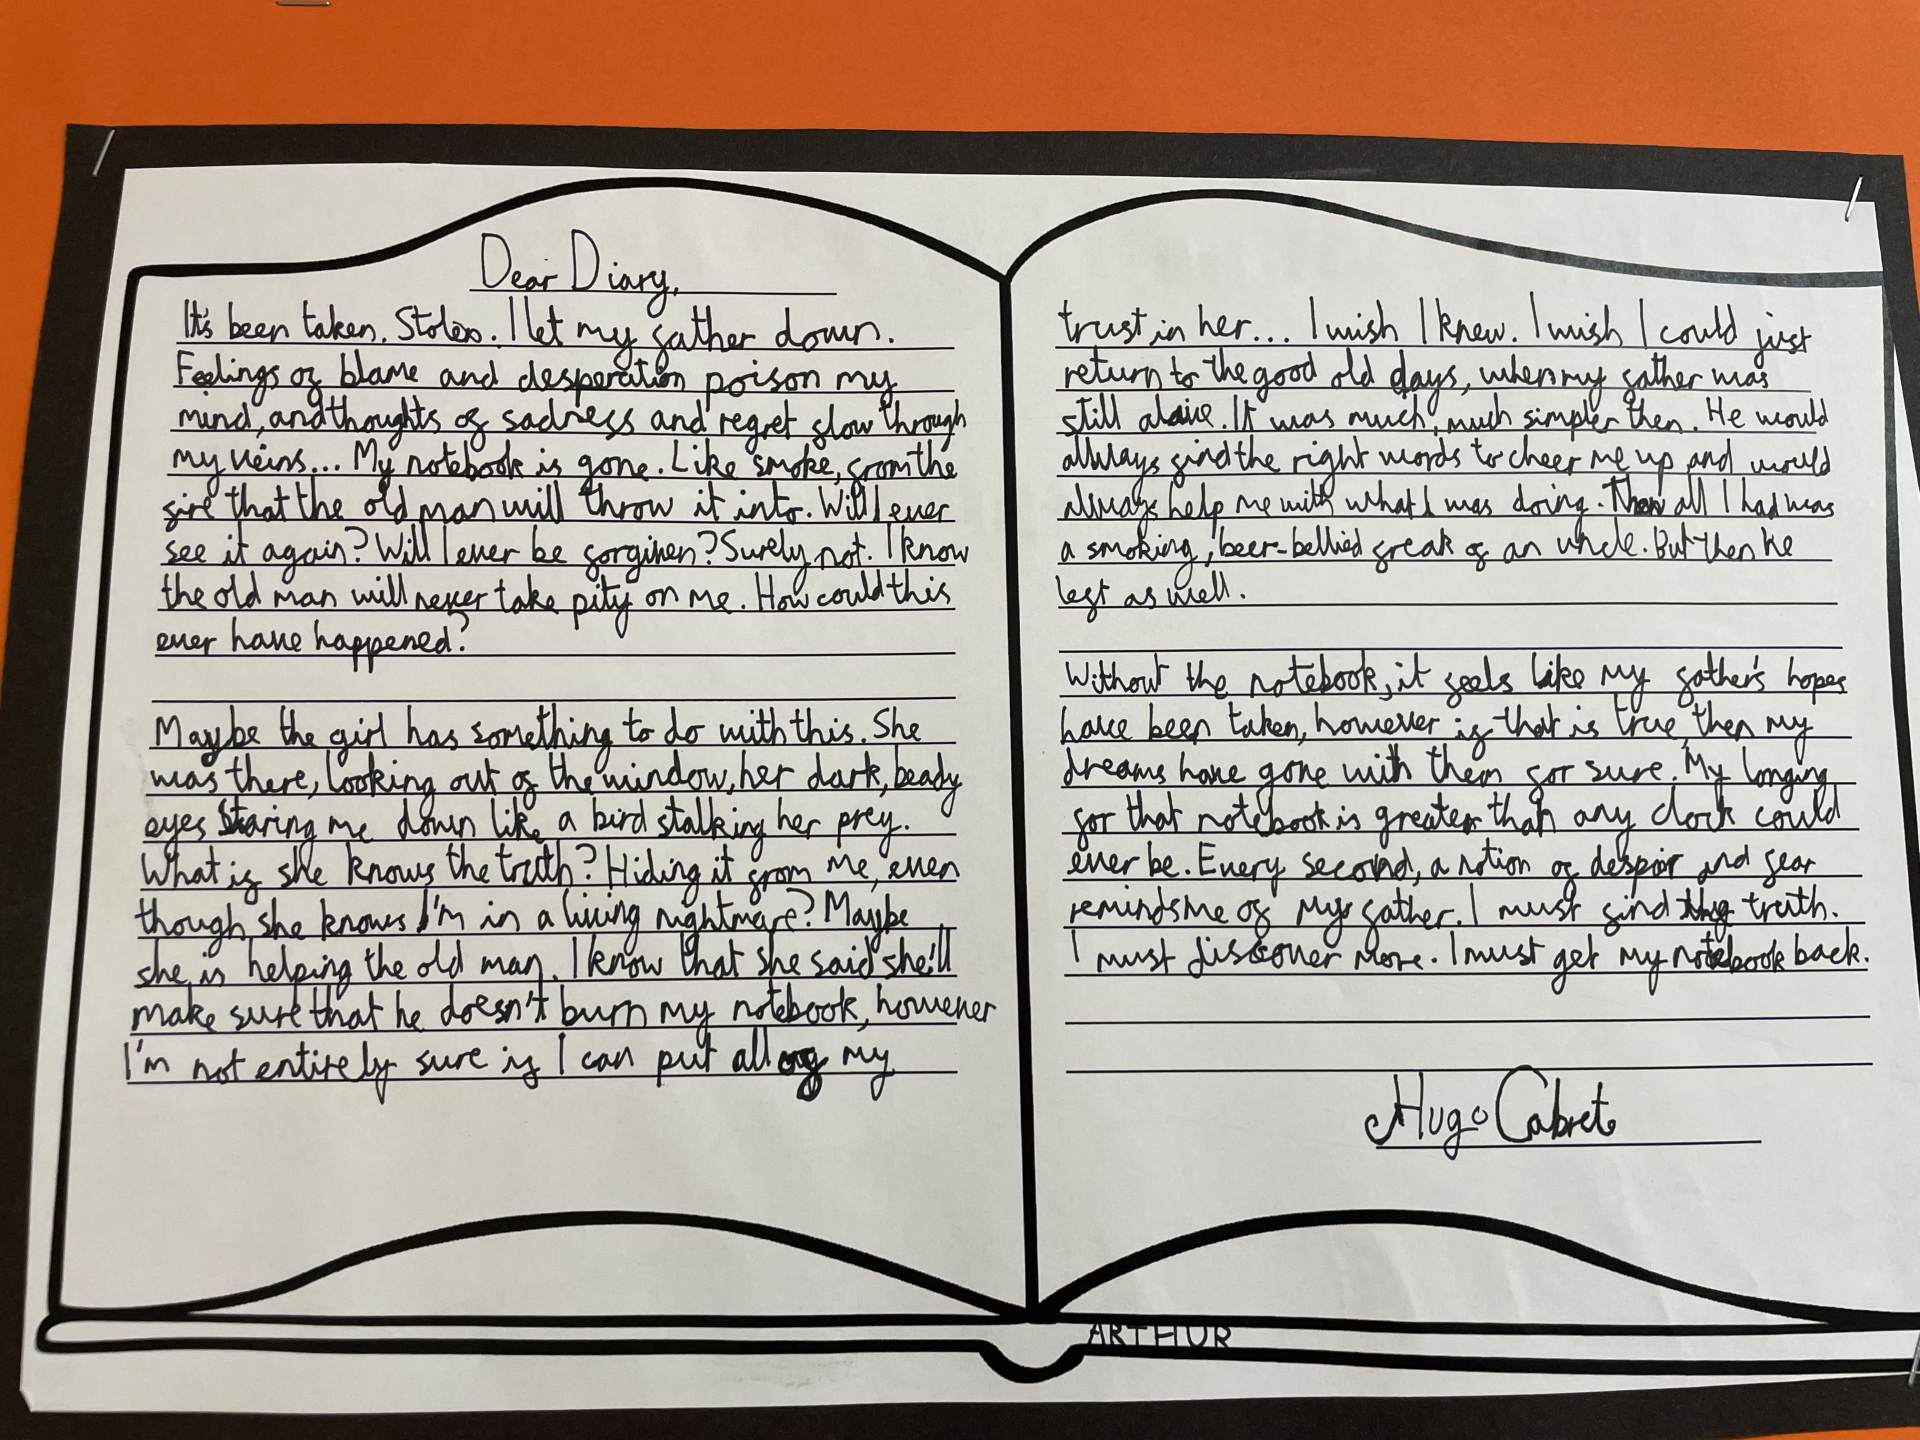 Dear Diary,
It's been taken. Stolen. I let my father down.
Feelings of blame and desperation poison my
mind, and thoughts of sadness and regret flow through
my veins... My notebook is gone. Like smoke, from the
fire that the old man will throw it into. Will I ever
see it again? Will I ever be forgiven? Surely not. I know
the old man will never take pity on me. How could this
ever have happened?
Maybe the girl has something to do with this. She
was there, looking out of the window, her dark, beady
eyes staring me down like a bird stalking her prey.
What if she knows the truth? Hiding it from me, even
though she knows I'm in a living nightmare? Maybe
she is helping the old man. I know that she said she'll
make sure that he doesn't burn my notebook, however
I'm not entirely sure if I can put all of my
trust in her... I wish I knew. I wish I could just
return to the good old days, when my father was
still alive. It was much, much simpler then. He would
allways find the right words to cheer me up and would
always help me with what I was doing. Then all I had was
a smoking, beer-bellied freak of an uncle. But then he
left as well.
Without the notebook, it feels like my father's hopes
have been taken, however if that is true, then my
dreams have gone with them for sure. My longing
for that notebook is greater than any clock could
ever be. Every second, a notion of despair and fear
reminds me of my father. I must find the truth.
I must discover more. I must get my notebook back.
Hugo Cabret
ARTHUR